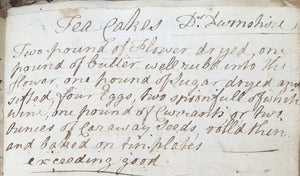 Tea Cakes Dr Dunmohire
Two pound of Flower dryed, one
pound of butter well rubb into the
flower, one pound of sugar dryed and
sifted, four Eggs, two spoonfull of white
wine, one pound of Currants, or two
Ounces of Caraway Seeds, roll'd thin
and baked on tin plates
exceeding good